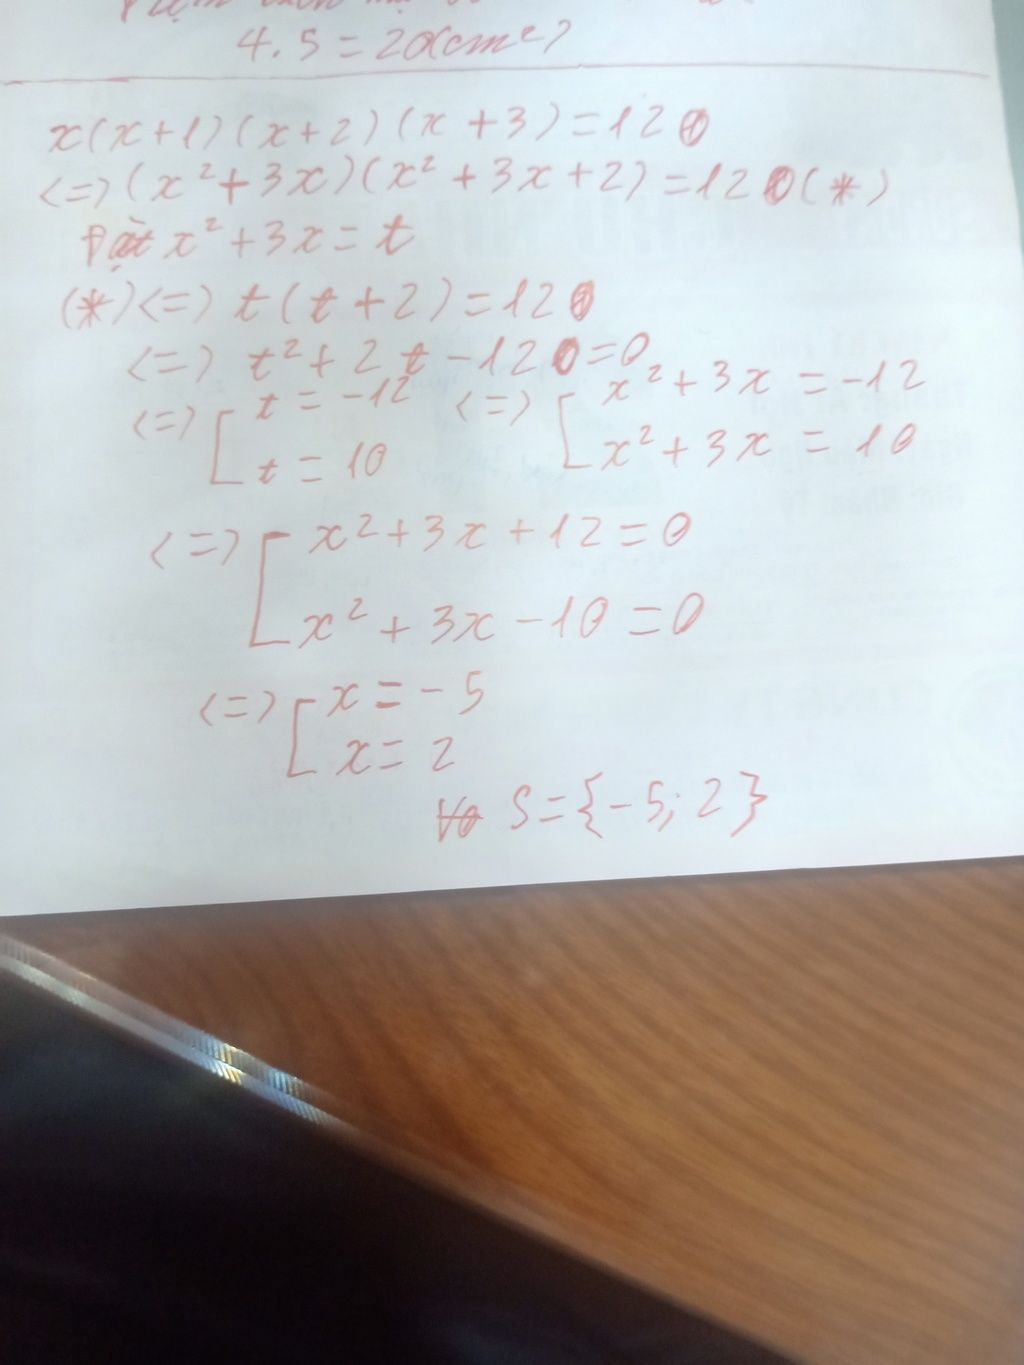 4.5=20(cm²)
x(x+1)(x+2)(x+3)=120
<=>(x²+3x)(x²+3x+2)=120(*)
Đặt x²+3x=t
(*)<=> t(t+2)=120
<=> t²+2t-120=0
<=>[ t=-12 <=>[ x²+3x=-12
t=10 x²+3x=10
<=>[ x²+3x+12=0
x²+3x-10=0
<=>[ x=-5
x=2
S={-5;2}